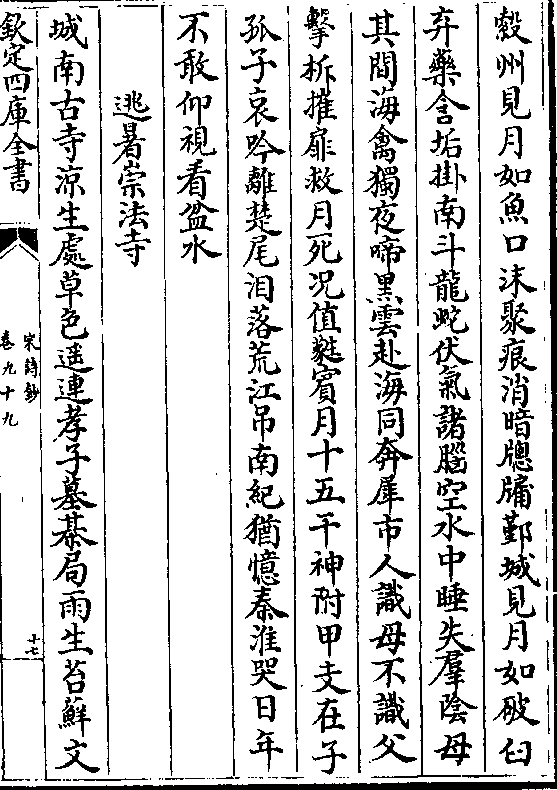 穀州見月如魚口沫聚痕消暗牕牖鄞城見月如破臼
弃藥含垢掛南斗龍蛇伏氣諸腦空水中睡失羣陰母
其間海禽獨夜啼黑雲赴海同奔犀市人識母不識父
擊柝摧扉救月死况值蕤賓月十五干神附甲支在子
孤子哀吟離楚尾泪落荒江吊南紀猶憶秦淮哭日年
不敢仰視看盆水
逃暑崇法寺
城南古寺涼生處草色遥連孝子墓棊局雨生苔蘚文
欽定四庫全書
宋詩鈔
卷九十九
十七